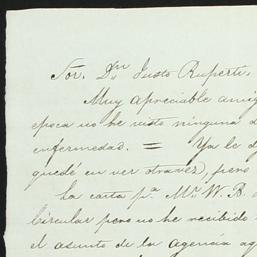 Sor. Dn. Justo Ruperti
Muy apreciable amig
epoca no he visto ninguna d
enfermedad. = Ya le d
quedé en ver otravez, pero
la carta pa. Mr. W. B.
Circular pero no he recibido
el asunto de la agencia ag